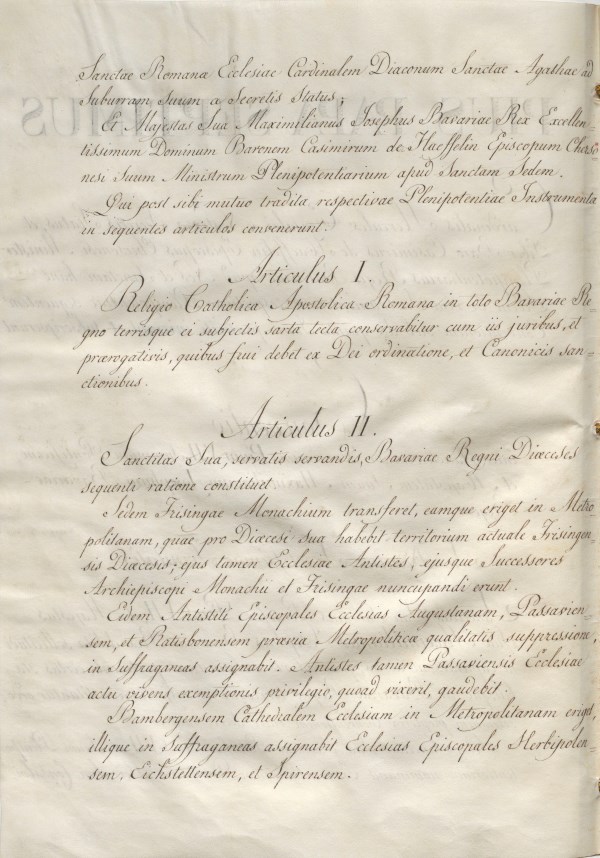 Sanctae Romana Ecclesiae Cardinalem Diaconum Sanctae Agathae ad
Suburram, Suum a Secretis Status;
Et Majestas Sua Maximilianus Iosephus Bavariae Rex Excellen-
tissimum Dominum Baronem Casimirum de Haeffelin Episcopum Cherso-
nesi Suum Ministrum Plenipotentiarium apud Sanctam Sedem.
Qui post sibi mutuo tradita respectivae Plenipotentiae Instrumenta
in sequentes articulos convenerunt.
Articulus I.
Religio Catholica Apostolica Romana in toto Bavariae Re-
gno terrisque ei subjectis sarta tecta conservabitur cum iis juribus, et
praerogativis, quibus frui debet ex Dei ordinatione, et Canonicis san-
ctionibus.
Articulus II.
Sanctitas Sua, servatis servandis, Bavariae Regni Dioeceses
sequenti ratione constituet.
Sedem Frisingae Monachium transferet, eamque eriget in Metro-
politanam, quae pro Dioecesi sua habebit territorium actuale Frisingen-
sis Dioecesis; ejus tamen Ecclesiae Antistes, ejusque Successores
Archiepiscopi Monachii et Frisingae nuncupandi erunt.
Eidem Antistiti Episcopales Ecclesias Augustanam, Passavien-
sem, et Ratisbonensem praevia Metropoliticae qualitatis suppressione,
in Suffraganeas assignabit. Antistes tamen Passaviensis Ecclesiae
actu vivens exemptionis privilegio, quoad vixerit, gaudebit.
Bambergensem Cathedralem Ecclesiam in Metropolitanam eriget,
illique in Suffraganeas assignabit Ecclesias Episcopales Herbipolen-
sem, Eichstettensem, et Spirensem.